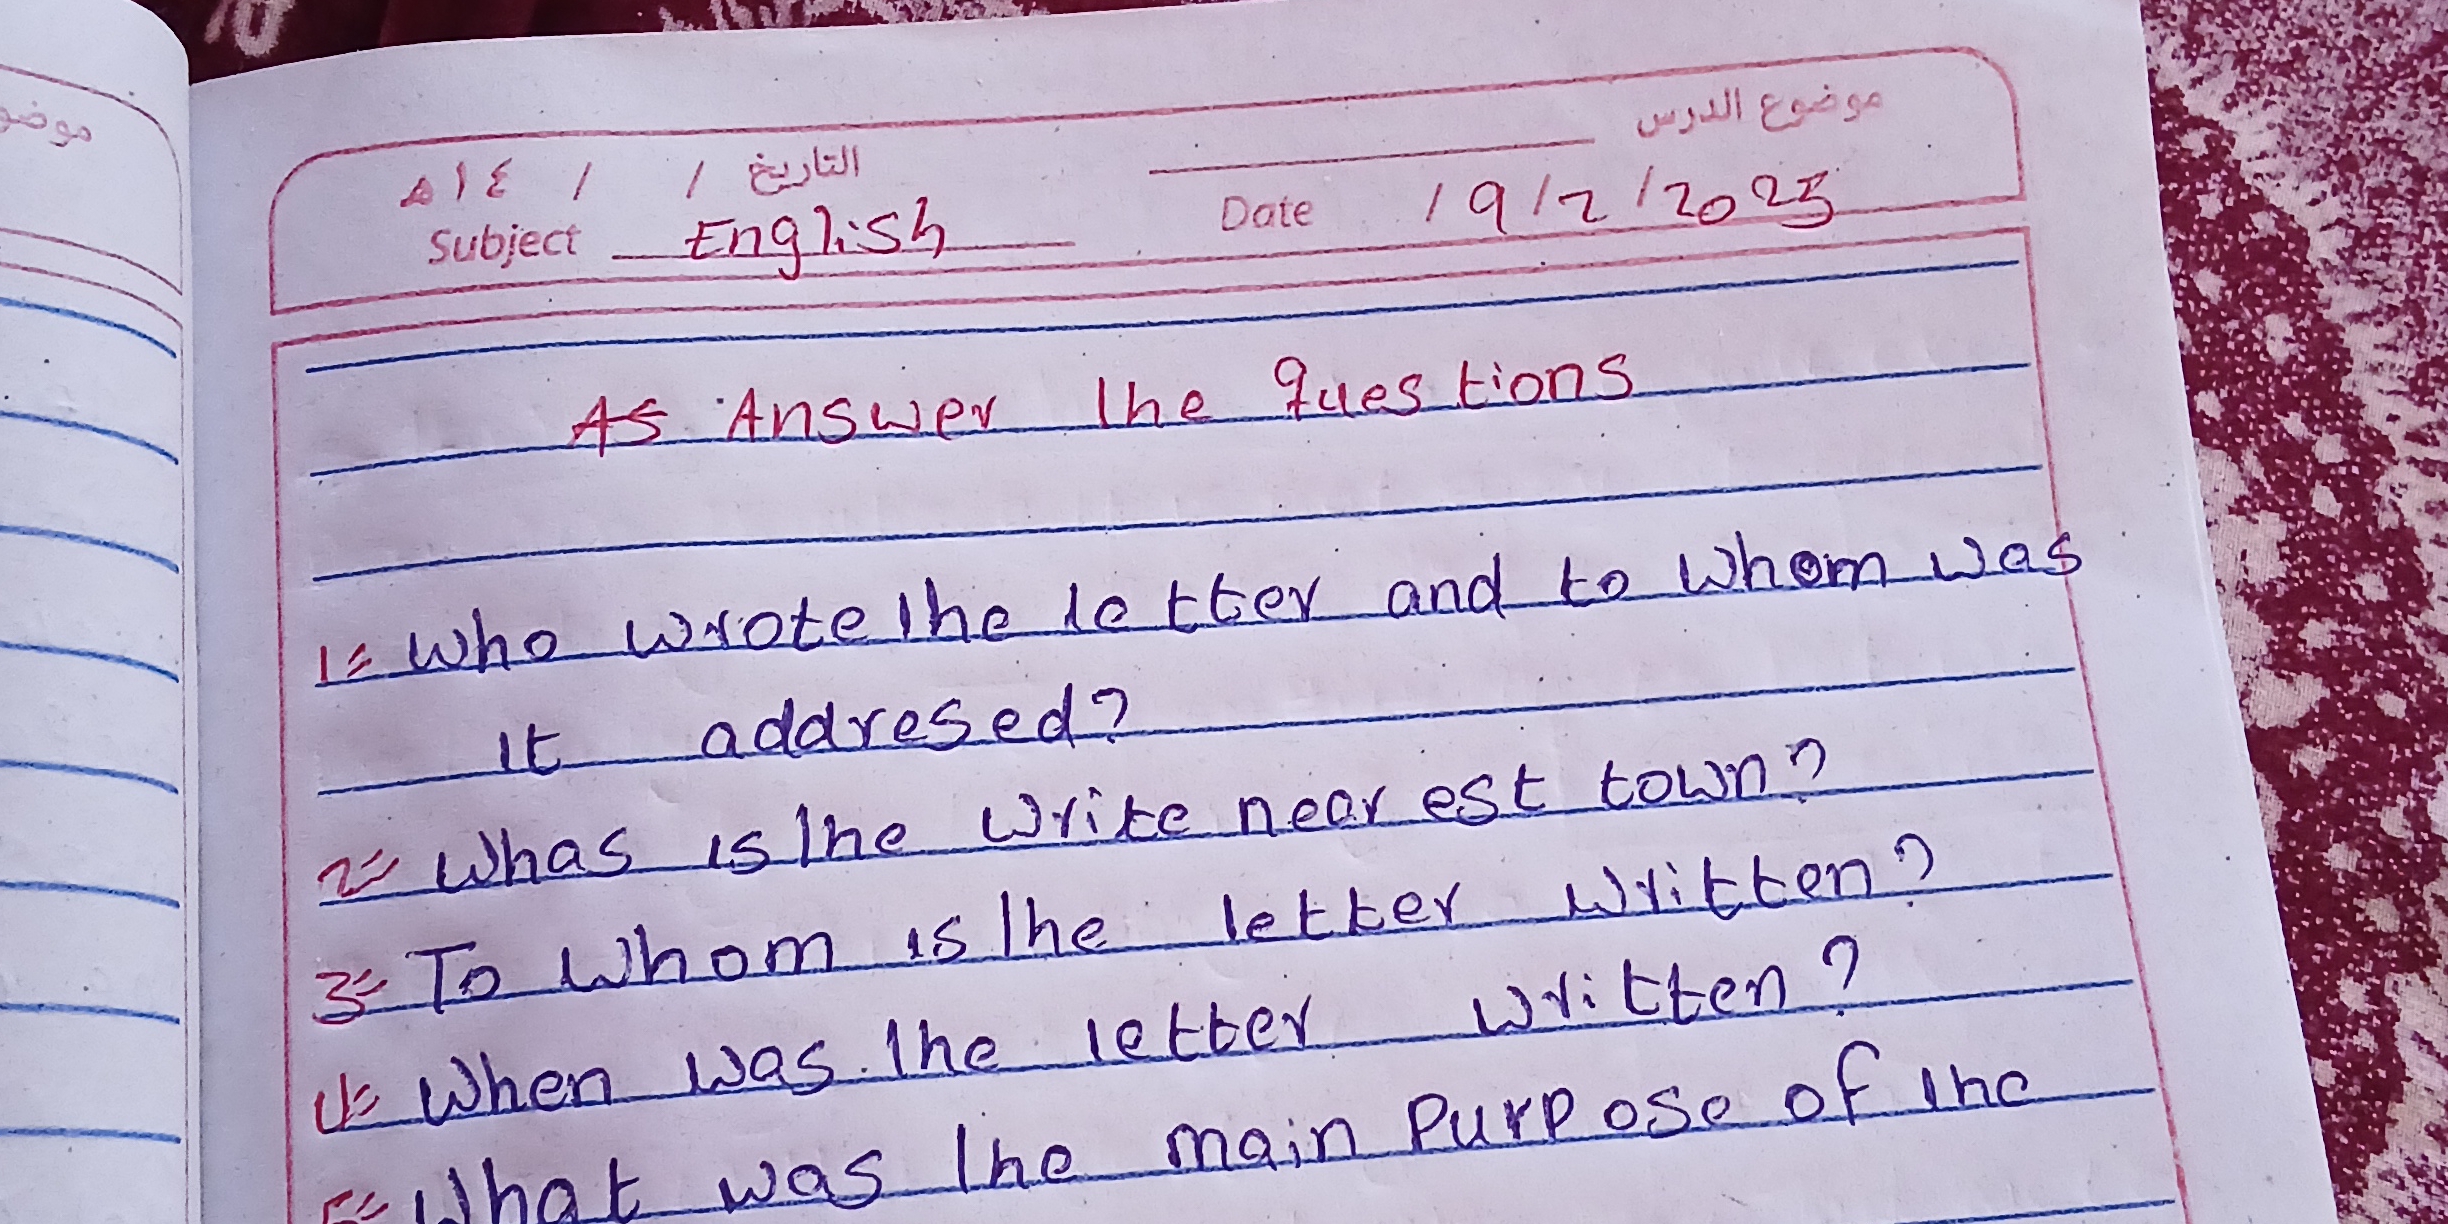 موضوع الدرس
التاريخ / / ١٤هـ
Subject English Date 19/2/2025
As Answer the questions
1= Who wrote the letter and to whom was
it addresed?
2= Whas is the write nearest town?
3= To whom is the letter written?
4= When was the letter written?
5= What was the main Purpose of the